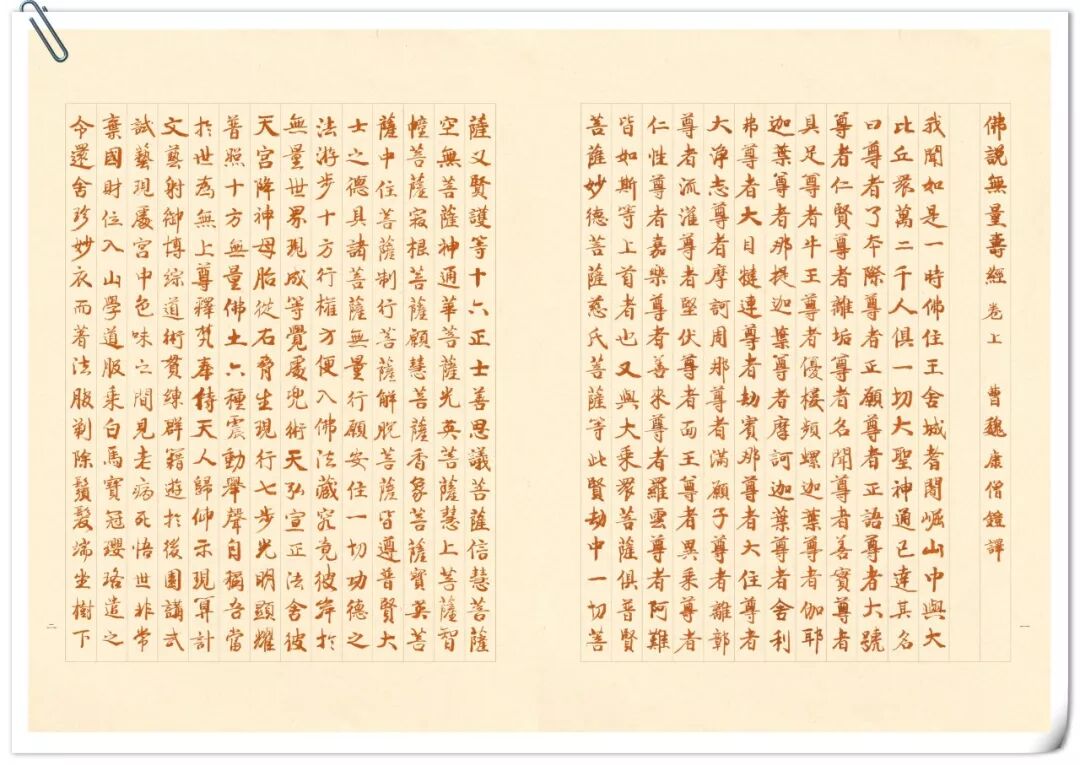 佛說無量壽經 卷上 曹魏康僧鎧譯
我聞如是一時佛住王舍城耆闍崛山中與大
比丘眾萬二千人俱一切大聖神通已達其名
曰尊者了本際尊者正願尊者正語尊者大號
尊者仁賢尊者離垢尊者名聞尊者善實尊者
具足尊者牛王尊者優樓頻螺迦葉尊者伽耶
迦葉尊者那提迦葉尊者摩訶迦葉尊者舍利
弗尊者大目犍連尊者劫賓那尊者大住尊者
大淨志尊者摩訶周那尊者滿願子尊者離鄣
尊者流灌尊者堅伏尊者面王尊者異乘尊者
仁性尊者嘉樂尊者善來尊者羅雲尊者阿難
皆如斯等上首者也又與大乘眾菩薩俱普賢
菩薩妙德菩薩慈氏菩薩等此賢劫中一切菩
一
薩又賢護等十六正士善思議菩薩信慧菩薩
空無菩薩神通華菩薩光英菩薩慧上菩薩智
幢菩薩寂根菩薩願慧菩薩香象菩薩寶英菩
薩中住菩薩制行菩薩解脫菩薩皆遵普賢大
士之德具諸菩薩無量行願安住一切功德之
法游步十方行權方便入佛法藏究竟彼岸於
無量世界現成等覺處兜術天弘宣正法舍彼
天宮降神母胎從右脅生現行七步光明顯耀
普照十方無量佛土六種震動舉聲自稱吾當
於世為無上尊釋梵奉侍天人歸仰示現算計
文藝射御博綜道術貫練群籍遊於後園講武
試藝現處宮中色味之間見老病死悟世非常
棄國財位入山學道服乘白馬寶冠瓔珞遣之
令還舍珍妙衣而著法服剃除鬚髮端坐樹下
二